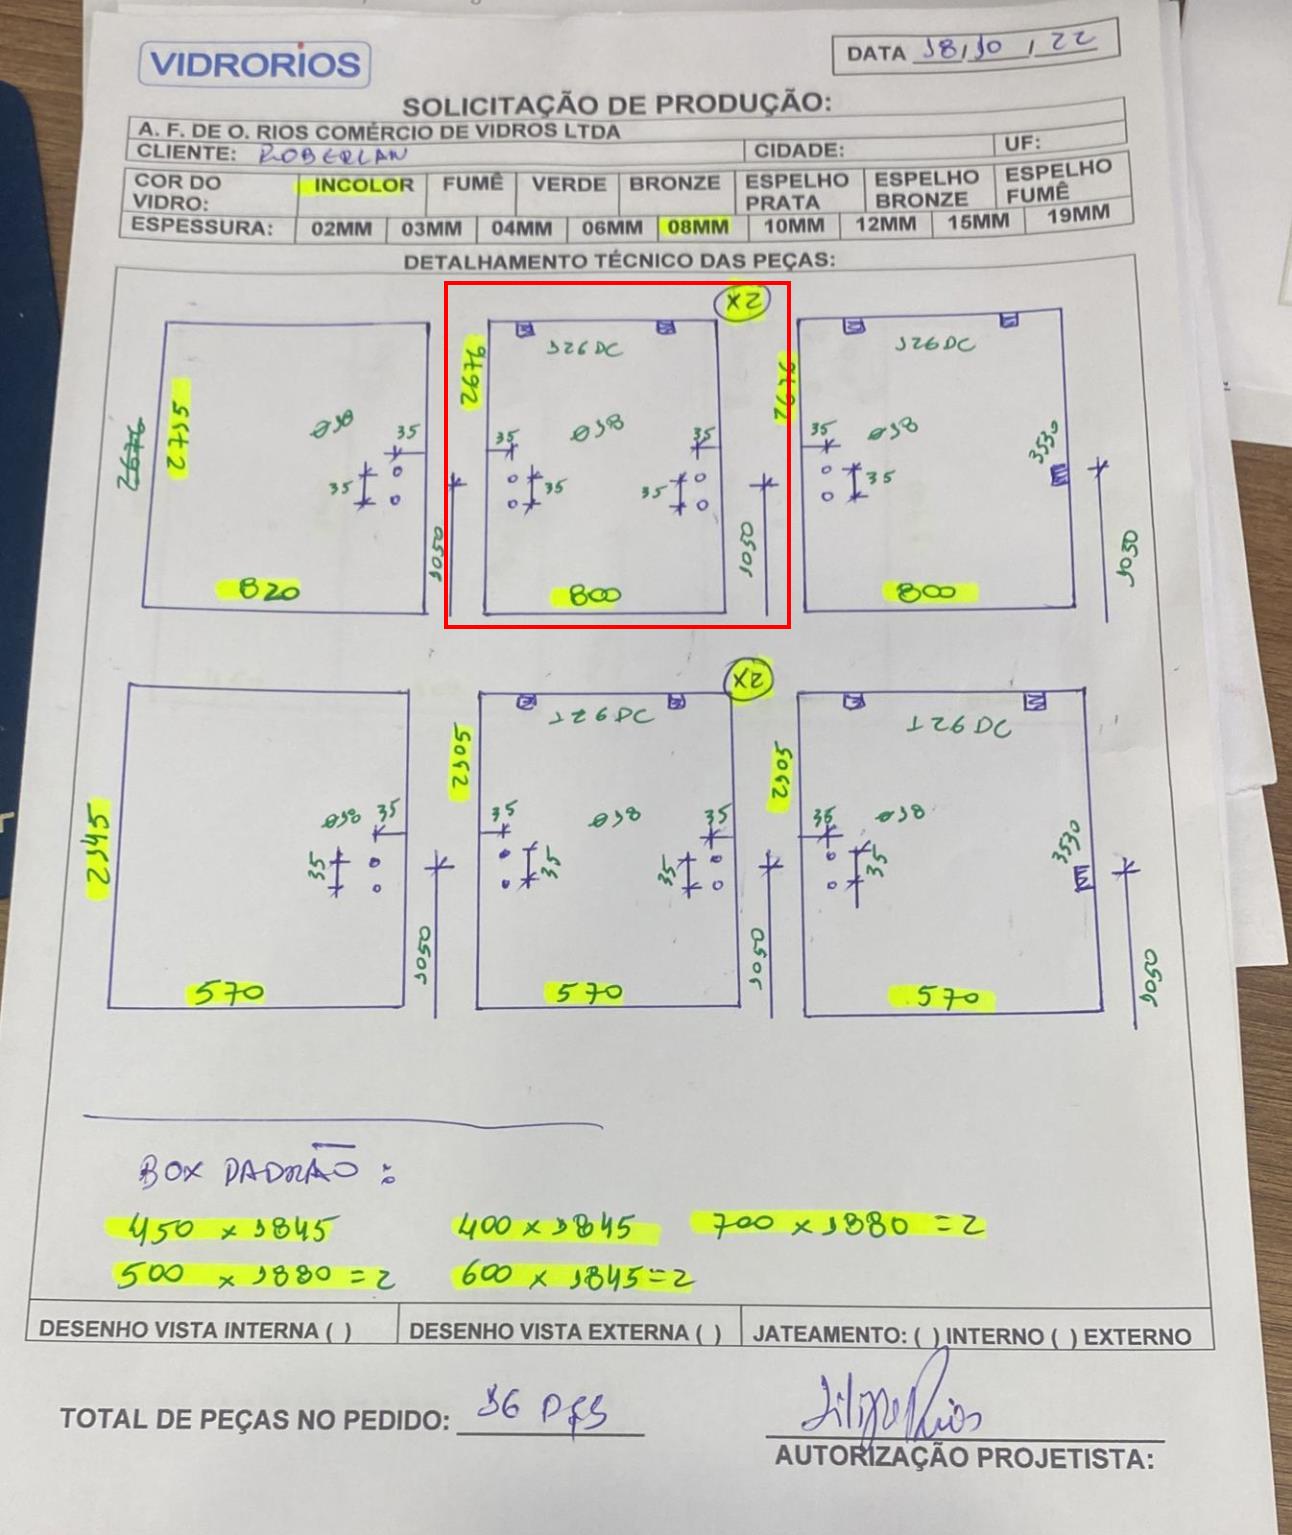 VIDRORIOS
DATA 18/10/22
SOLICITAÇÃO DE PRODUÇÃO:
A. F. DE O. RIOS COMÉRCIO DE VIDROS LTDA
CLIENTE: ROBERLAN CIDADE: UF:
COR DO VIDRO: INCOLOR FUMÊ VERDE BRONZE ESPELHO PRATA ESPELHO BRONZE ESPELHO FUMÊ
ESPESSURA: 02MM 03MM 04MM 06MM 08MM 10MM 12MM 15MM 19MM
DETALHAMENTO TÉCNICO DAS PEÇAS:
x2
126 DC 126 DC
2676 2715 2676 2676
Ø18 35 35 Ø18 35 35 Ø18 3530
35 35 35 35
1050 1050 1050
820 800 800
2x
126 DC 126 DC
2145 2105 2105
Ø18 35 35 Ø18 35 35 Ø18 3530
35 35 35 35
1050 1050 1050
570 570 570
BOX PADRÃO:
450 x 1845 400 x 1845 700 x 1880 = 2
500 x 1880 = 2 600 x 1845 = 2
DESENHO VISTA INTERNA ( ) DESENHO VISTA EXTERNA ( ) JATEAMENTO: ( ) INTERNO ( ) EXTERNO
TOTAL DE PEÇAS NO PEDIDO: 16 PÇS
Filipe Rios
AUTORIZAÇÃO PROJETISTA: